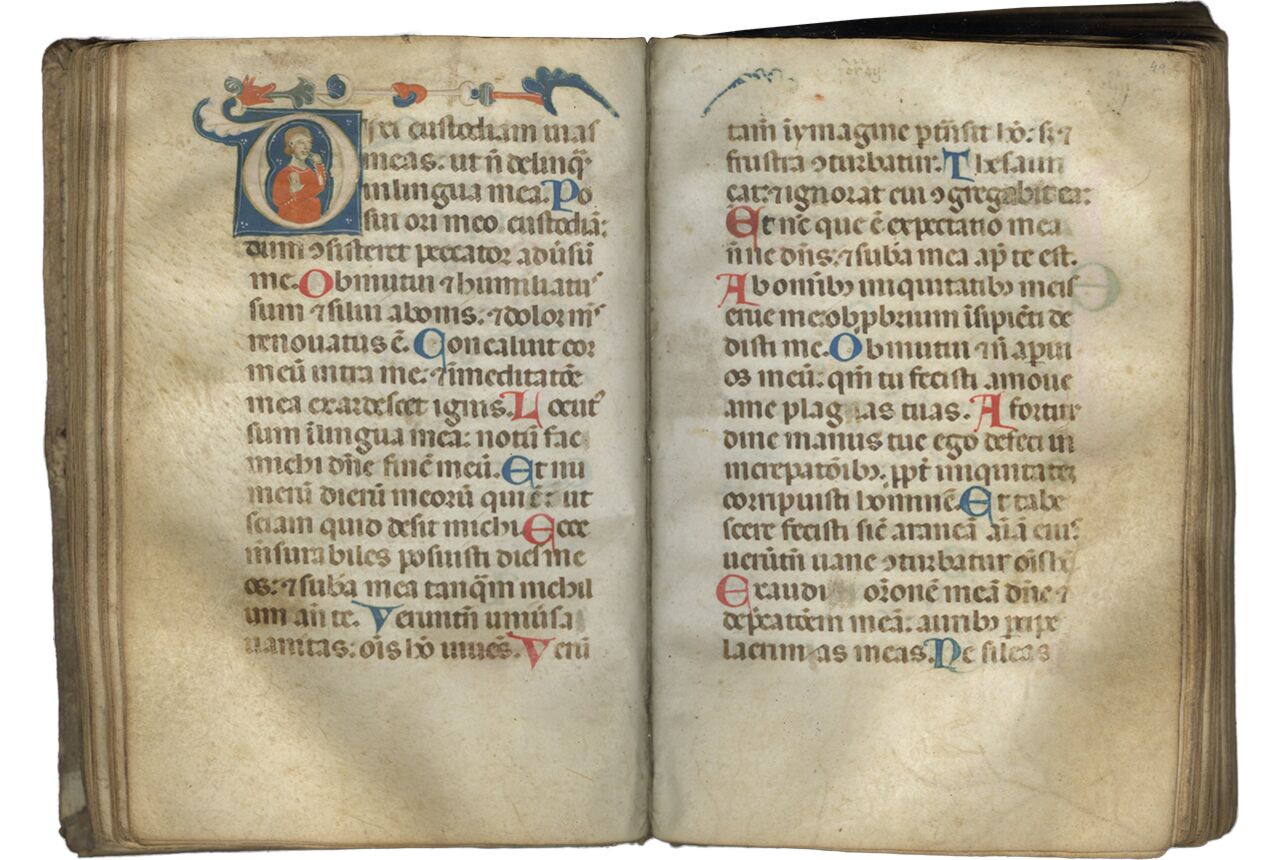 Dixi custodiam uias
meas: ut ñ delinq̃
in lingua mea. Po
sui ori meo custodiã:
dum ↄsisteret peccator aduersũ
me. Obmutui ⁊ humiliatus
sum ⁊ silui a bonis: ⁊ dolor mẽs
renouatus ẽ. Concaluit cor
meũ intra me: ⁊ ĩ meditatõe
mea exardescet ignis. Locut᾽
sum ĩ lingua mea: notũ fac
michi dñe finẽ meũ. Et nu
merũ dierũ meorũ qui ẽ: ut
sciam quid desit michi Ecce
m̃surabiles posuisti dies me
os: ⁊ subã mea tanq̃m nichil
um añ te. Veruntñ uniũsa
uanitas: oĩs hõ uiuẽs. Veru
49
tam̃ ĩ ymagine ptñsit hõ: s; ⁊
frustra ↄturbatur. Thesauri
cat: ⁊ ignorat cui ↄgregabit ea:
Et nũc que ẽ expectatio mea
ñne dñs: ⁊ subã mea ap̃ te est.
Ab omĩbꝫ iniquitatibꝫ meis
erue me: obp̃brium ĩsipiẽti de
disti me. Obmutui ⁊ ñ aperui
os meũ: qm̃ tu fecisti amoue
a me plagas tuas. A fortitu
dine manus tue ego defeci in
increpatõibꝫ: ꝓpt̃ iniquitatẽ
corripuisti hominẽ Et tabe
scere fecisti sic̃ araneã aĩã eius:
uerũtñ uane ↄturbatur oĩs hõ
Exaudi orõnẽ meã dñe ⁊
dep̃catõem meã: auribꝫ percipe
lacrimas meas. Ne sileas